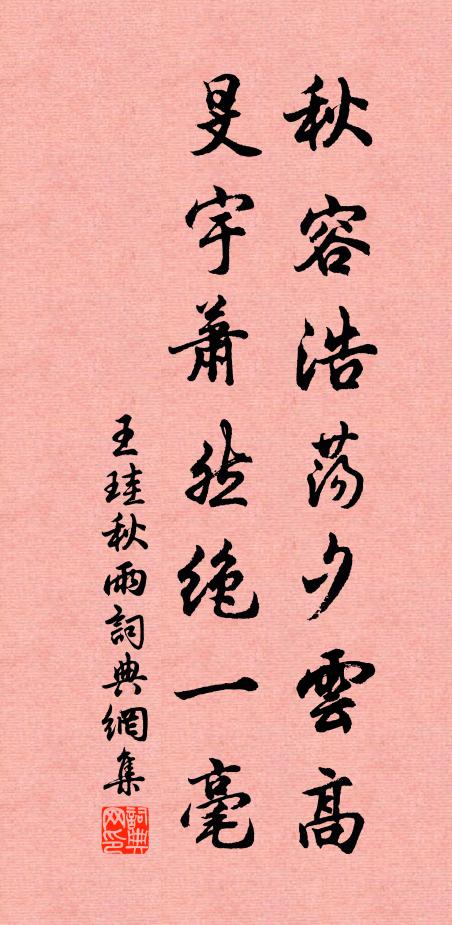 秋容浩荡夕雲高
旻宇蕭然絶一毫
王珪秋雨詞典網集
詞典网印